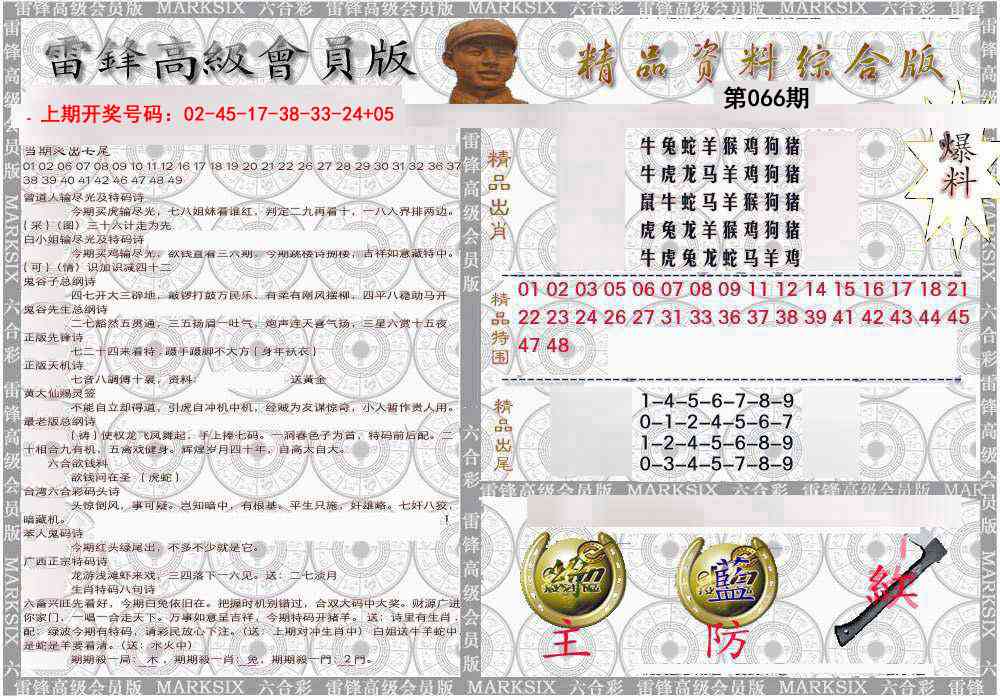 雷锋高级会员版 MARKSIX 六合彩 雷锋高级会员版 MARKSIX 六合彩 雷锋高级会员版 MARKSIX 六合彩
雷鋒高級會員版
精品资料综合版
第066期
上期开奖号码：02-45-17-38-33-24+05
01 02 06 07 08 09 10 11 12 16 17 18 19 20 21 22 26 27 28 29 30 31 32 36 37
38 39 40 41 42 46 47 48 49
曾道人输尽光及特码诗
今期买虎输尽光，七八姐妹看谁红，判定二九再看十，一八入界排两边。
{采}(图) 三十六计走为先
白小姐输尽光及特码诗
今期买鸡输尽光，欲钱直看三六期，今期跳楼诗捌楼，吉祥如意藏特中。
{可}(情) 识加识减四十二
鬼谷子总纲诗
四七开大三辟地，敲锣打鼓万民乐，有柔有刚风摆柳，四平八稳动马开
鬼谷先生总纲诗
二七豁然五贯通，三五扬眉一吐气，炮声连天喜气扬，三星六赏十五夜
正版先锋诗
七二十四来看特，蹑手蹑脚不大方{身年扶衣}
正版天机诗
七音八韻傅十襲，资料： 送黃金
黄大仙赐灵签
不能自立却得道，引虎自冲机中机，经贼为友谋惊奇，小人暂作贵人用。
最老版总纲诗
{涛}使权龙飞凤舞起，手上捧七码。一洞春色子为首，特码前后配。二
十相合九有机，五禽戏健身。辉煌岁月四十年，自高大自大。
六合欲钱料
欲钱问在圣 {虎蛇}
台湾六合彩码头诗
头惊倒风，事可疑。岂知暗中，有根基。平生只施，奸雄略。七奸八狡，
暗藏机。 1
本人鬼码诗
今期红头绿尾出，不多不少就是它。
广西正宗特码诗
龙游浅滩虾来戏，三四落下一六见。送：二七淡月
生肖特码八句诗
六畜兴旺先看好，今期白兔依旧在。把握时机别错过，合双大码中大奖。财源广进
你家门，一唱一合走天下。万事如意呈吉祥，今期特码开猪羊。送：诗里有生肖．
配：绿波今期有特码，请彩民放心下注。(送：上期对冲生肖中) 白姐送牛羊蛇中
是蛇是羊要看清。(送：水火中)
期期殺一局：木，期期殺一肖：兔，期期殺一門：2門。
精品出肖
牛兔蛇羊猴鸡狗猪
牛虎龙马羊鸡狗猪
鼠牛蛇马羊猴狗猪
虎兔龙羊猴鸡狗猪
牛虎兔龙蛇马羊鸡
爆料
精品特围
01 02 03 05 06 07 08 09 11 12 14 15 16 17 18 21
22 23 24 26 27 31 33 36 37 38 39 41 42 43 44 45
47 48
精品出尾
1-4-5-6-7-8-9
0-1-2-4-5-6-7
1-2-4-5-6-8-9
0-3-4-5-7-8-9
主
藍
防
雷锋高级会员版 MARKSIX 六合彩 雷锋高级会员版 MARKSIX 六合彩 雷锋高级会员版 MARKSIX 六合彩